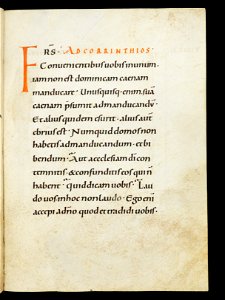 FRS· AD CORINTHIOS·
Conuenientibus uobis inunum·
iam non est dominicam caenam
manducare· Unusquisq· enim suā
caenam p̄sumit admanducandū·
Et alius quidem esurit· alius aut̄
ebrius est· Numquid domos non
habetis admanducandum· et bi
bendum· Aut aecclesiam dī con
temnitis· & confunditis eos qui ñ
habent· Quid dicam uobis· Lau
do uos in hoc non laudo· Ego enī
accepi adño quod et tradidi uobis·